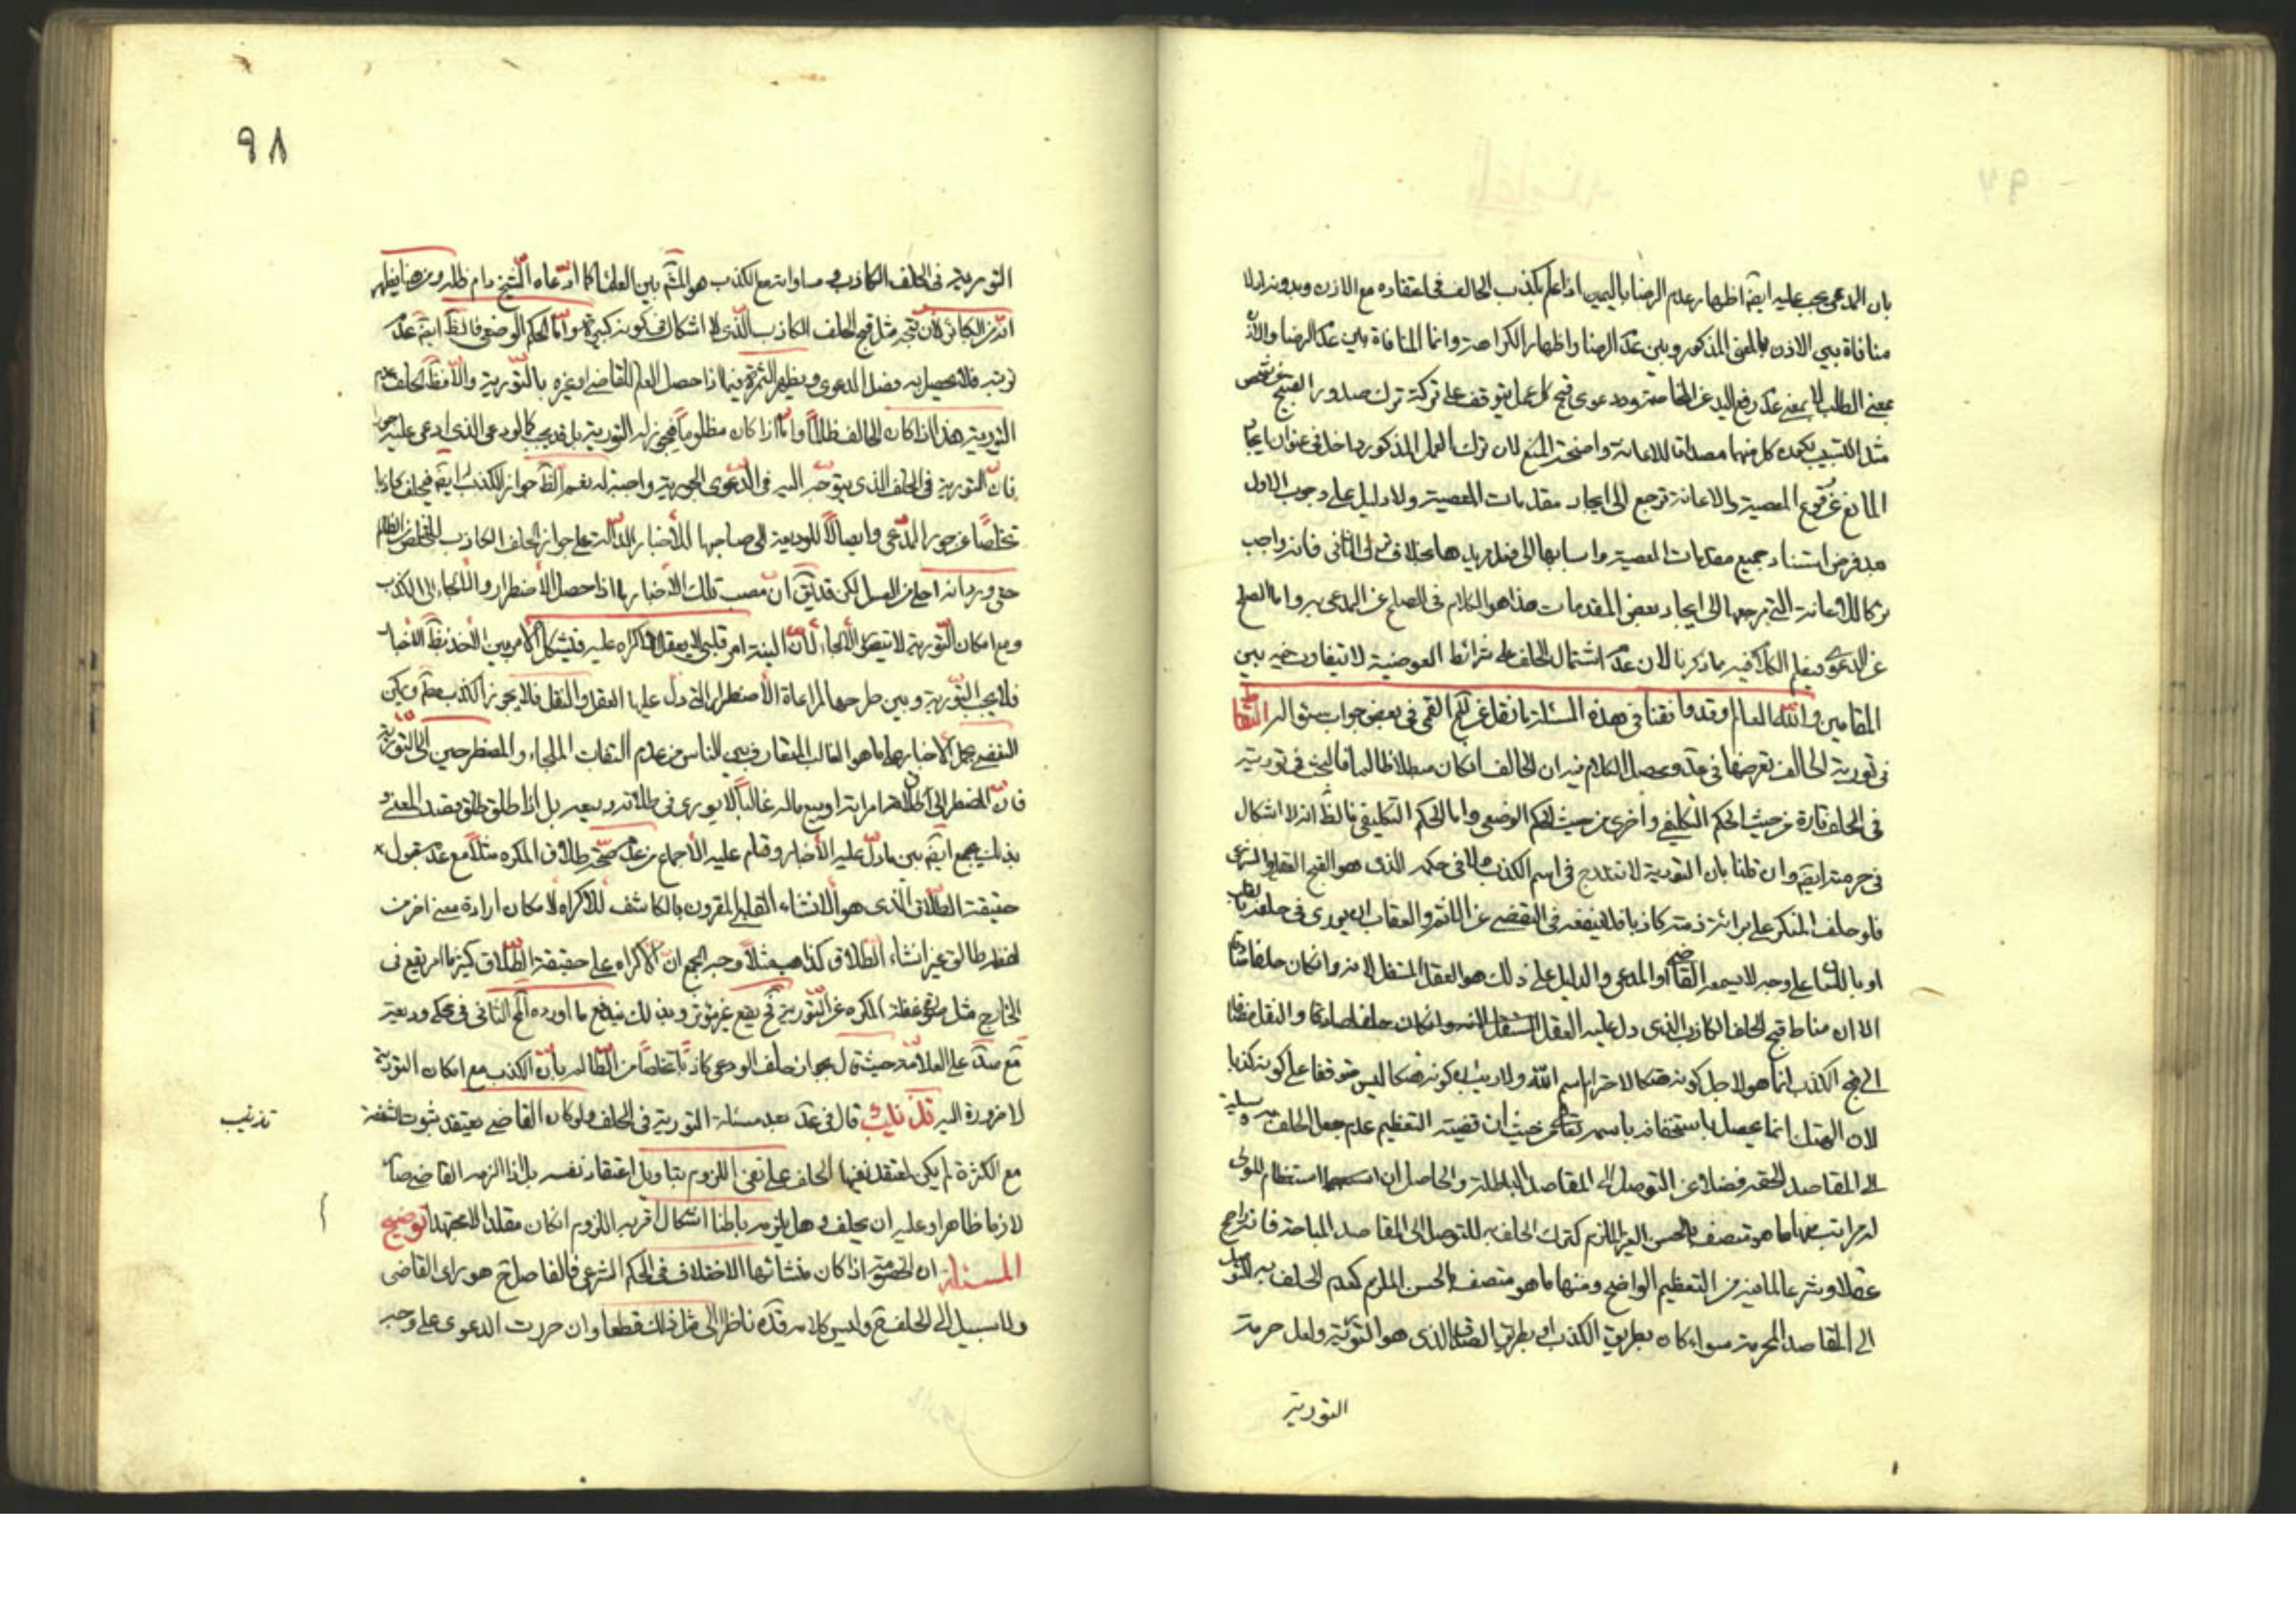 بان المدعى يجب عليه ايضۤ اظهار عدم الرضا باليمين اذا علم بكذب الحالف فى اعتقاده مع الاذن وبدونه اذ لا
منافاة بين الاذن بالمعنى المذكور وبين عدۤ الرضا واظهار الكراهة وانما المنافاة بين عدۤ الرضا والاذن
بمعنى الطلب لا بمعنى عدۤ رفع اليد عن المخاصمة ودعوى قبح كل عمل يتوقف على تركه ترك صدور القبيح عن شخص
مثل التسبيب كل منهما مصداقا للاعانة واضحة المنع لان ترك العمل المذكور داخل فى عنوان ايجاد
المانع عن وقوع المعصية والاعانة ترجع الى ايجاد مقدمات المعصية ولا دليل على وجوب الاول
بعد فرض استناد جميع مقدمات المعصية واسبابها الى فعل مريدها بخلاف الثانى فانه واجب
تركا للاعانة التى مرجعها الى ايجاد بعض المقدمات هذا هو الكلام فى الصلح عن المدعى به واما الصلح
عن الدعوى فيعلم الكلام فيه مما ذكرنا لان عدۤ اشتمال الحلف على شرائط العوضية لا يتفاوت فيه بين
المقامين والله العالم وقد وافقنا فى هذه المسئلة ما نقل عن القمى فى بعض جواب سئواله
فى تورية الحالف تعرضها فى عدۤ ومحصل الكلام فيه ان الحالف ان كان مبطلا ظالما فالبحث فى توريته
فى الحلف تارة من حيث الحكم التكليفى واخرى من حيث الحكم الوضعى واما الحكم التكليفى فالظۤ انه لا اشكال
فى حرمته ايضۤ وان قلنا بان التورية لا تندرج فى اسم الكذب ولا فى حكمه الذى هو القبح العقلى والشرعى
فلو حلف المنكر على برائة ذمته كاذبا فلا ينفعه فى التقضى عن الماثم والعقاب ان يورى فى حلفه بالقلب
او باللسان على وجه لا يسمعه القاضى او المدعى والدليل على ذلك هو العقل المستقل لانه وان كان حلفا صادقا
الا ان مناط قبح الحلف الكاذب الذى دل عليه العقل والنقل
الى قبح الكذب انما هو لاجل كونه هتكا لاحترام اسم الله ولا ريب ان كونه هتكا ليس متوقفا على كونه كذبا
لان الهتك انما يحصل باستخفافه باسمه تعالى من حيث ان قضية التعظيم عدم جعل الحلف به وسيلة
الى المقاصد الحقه فضلا عن التوصل الى المقاصد الباطلة والحاصل ان استعظام المولى
له مراتب منها ما هو متصف بالحسن الغير الملزم كترك الحلف به للتوصل الى المقاصد المباحة فانه راجح
عقلا وشرعا لما فيه من التعظيم الواضح ومنها ما هو متصف بالحسن الملزم كعدم الحلف به للتوصل
الى المقاصد المحرمة سواء كان بطريق الكذب او بطريق الصدق الذى هو التورية ولعل حرمة
التورية
٩٨
التورية فى الحلف الكاذب ومساواته مع الكذب هو المشۤ بين العلماء كما ادّعاه الشيخ دام ظله ومن هنا يظهر
انّه من الكبائر لان قبحه مثل قبح الحلف الكاذب الّذى لا اشكال فى كونه كبيرة وامّا الحكم الوضعى فالظۤ ايضۤ عدۤ
ترتبه فلا يحصل به فصل الدعوى ويظهر الثمرة فيما اذا حصل العلم للقاضى او غيره بالتّورية والّا فظۤ الحلف عدم
التورية هذا اذا كان الحالف ظالماً وامّا اذا كان مظلوماً فيجوز له التورية بل قد يجب كالودعى الذى ادعى عليه
فانّ التورية فى الحلف الذى يتوجّه اليه فى الدّعوى الجورية واجبة لو نفسه الظۤ جواز الكذب ايضۤ فيحلف كاذبا
تخلّصاً عن جور المدّعى وايصالاً للوديعة الى صاحبها للاخبار الدالّة على جواز الحلف الكاذب للتخلص من الظالم
حتى ورد انه احلى من العسل لكن قد يقۤ انّ مصب تلك الاخبار ما اذا حصل الاضطرار والالتجاء الى الكذب
ومع امكان التّورية لا يتحقق الالجاء لانّ النية امر قلبى لا يعقل الاكراه عليه فيشكل الامر بين الاخذ بظۤ الاخبار
فلا يجب التّورية وبين طرحها لمراعاة الاضطرار الّتى دل عليها العقل والنقل فلا يجوز الكذب معۤ ويمكن
التفصى بحمل الاخبار على ما هو الغالب المتعارف بين الناس من عدم التفات الملجاء والمضطر حين الى التوريّة
فانّ المضطر الى طلاق امراته او بيع ماله غالباً لا يورى فى طلاقه وبيعه بل اذا طلق طلق بقصد المعنى و
بذلك يجمع ايضۤ بين ما دلّ عليه الاخبار وقام عليه الاجماع من عدۤ صحّة طلاق المكره مثلاً مع عدۤ شمول
حقيقة الطّلاق الّذى هو الانشاء القلبى المقرون بالكاشف للاكراه لامكان ارادة معنى اخر من
لفظ طالق غير انشاء الطّلاق كذاهب مثلاً وجه الجمع انّ الاكراه على حقيقة الطّلاق كثيرا ما يقع فى
الخارج مثل صورة غفلة المكره عن التّورية فحۤ يقع غير مؤثر وبذلك يندفع ما اورده الشهيد الثانى فى محكى وديعة
على العلامّة حيث قال بجواز حلف الودعى كاذباً تخلّصا من الظّالم بانّ الكذب مع امكان التورية
لا ضرورة اليه تذنيب قال فى عدۤ بعد مسئلة التورية فى الحلف ولو كان القاضى يعتقد ثبوت الشفعة
تذنيب
مع الكثرة لم يكن لمعتقد نفيها الحلف على نفى اللزوم بتاويل اعتقاد نفسه بل اذا الزمه القاضى صار
لازما ظاهرا وعليه ان يحلف وهل يلزمه باطنا اشكال اقربه اللزوم ان كان مقلدا لا مجتهدا توضيح
المسئلة ان الخصومة اذا كان منشائها الاختلاف فى الحكم الشرعى فالفاصل حۤ هو راى القاضى
ولا سبيل الى الحلف حۤ وليس كلامه قدۤه ناظرا الى مثل ذلك قطعا وان حررت الدعوى على وجه